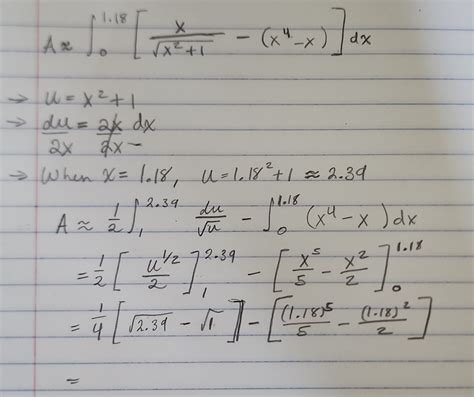 A ≈ ∫₀^1.18 [ x/√(x²+1) − (x⁴−x) ] dx
→ u = x²+1
→ du/2x = 2x/2x dx
→ When x = 1.18, u = 1.18²+1 ≈ 2.39
A ≈ 1/2 ∫₁^2.39 du/√u − ∫₀^1.18 (x⁴−x) dx
= 1/2 [ u^1/2 / 2 ]₁^2.39 − [ x⁵/5 − x²/2 ]₀^1.18
= 1/4 [ √2.39 − √1 ] − [ (1.18)⁵/5 − (1.18)²/2 ]
=